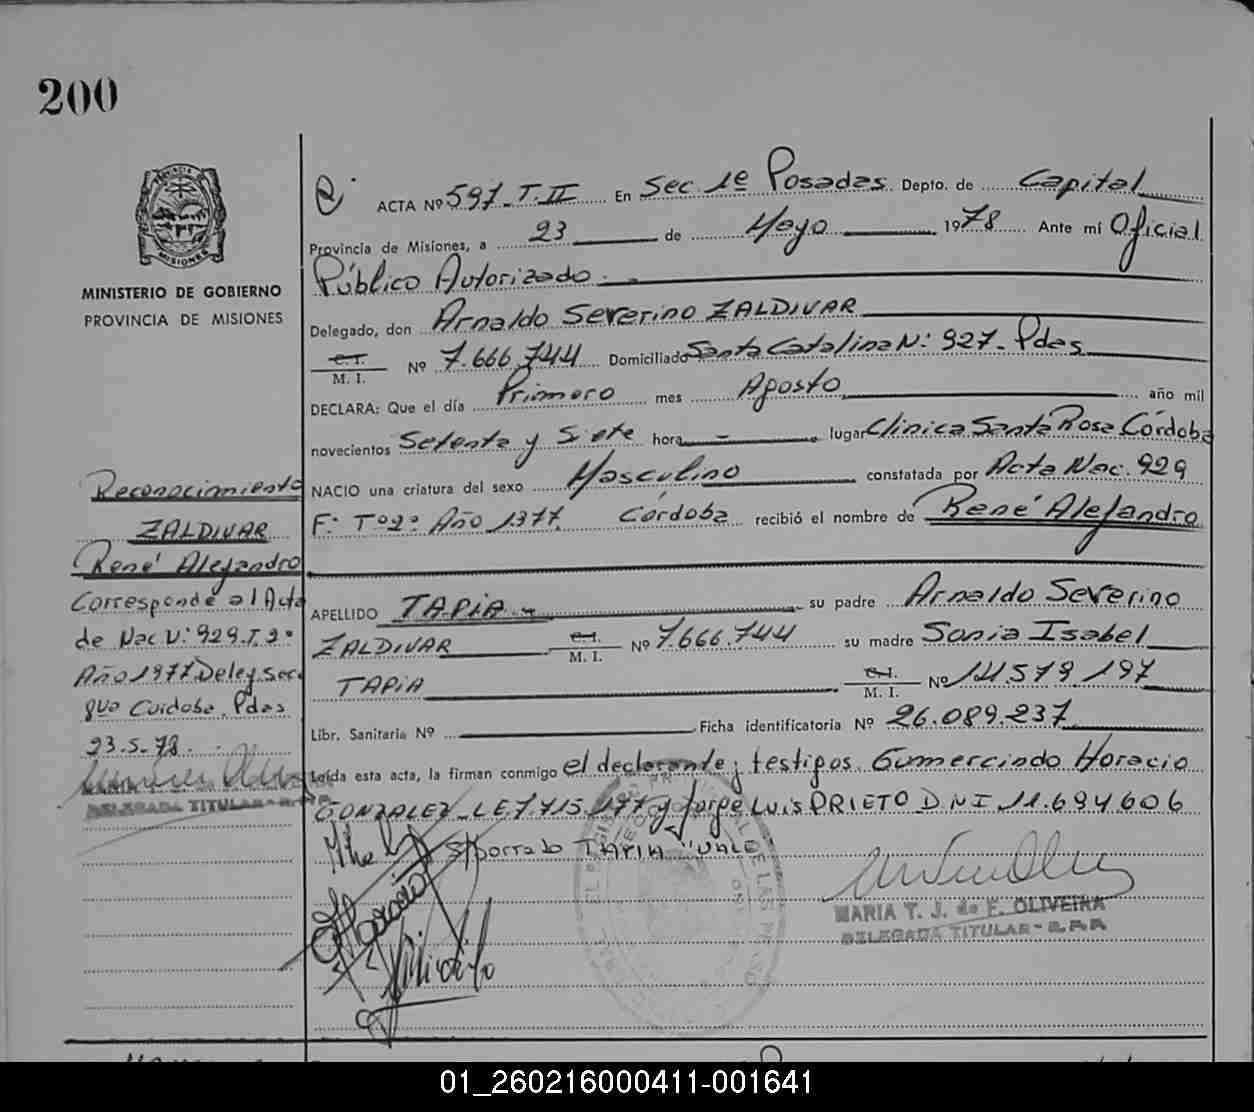 200
MINISTERIO DE GOBIERNO
PROVINCIA DE MISIONES
ACTA Nº 597_T.II En Sec 1ª Posadas Depto. de Capital
Provincia de Misiones, a 23 de Mayo 1978 Ante mí Oficial
Público Autorizado.
Delegado, don Arnaldo Severino ZALDIVAR
C.I.
M. I. Nº 7.666.744 Domiciliado Santa Catalina Nº: 927_Pdas
DECLARA: Que el día Primero mes Agosto año mil
novecientos Setenta y Siete hora - lugar Clinica Santa Rosa Córdoba
NACIO una criatura del sexo Masculino constatada por Acta Nac. 929
F: Tº2º Año 1977 Córdoba recibió el nombre de René Alejandro
APELLIDO TAPIA su padre Arnaldo Severino
ZALDIVAR C.I.
M. I. Nº 7.666.744 su madre Sonia Isabel
TAPIA C.I.
M. I. Nº 14.579.197
Libr. Sanitaria Nº Ficha identificatoria Nº 26.089.237
Leída esta acta, la firman conmigo el declarante y testigos Gumercindo Horacio
GONZALEZ_L.E.7.715.177 y Jorge Luis PRIETO D.N.I 11.694.606
S/borrado TAPIA "VALE"
MARIA T. J. de F. OLIVEIRA
DELEGADA TITULAR - R.P.P.
Reconocimiento
ZALDIVAR
René Alejandro
Corresponde al Acta
de Nac Nº: 929.T.2º
Año 1977 Deleg. Sec.
Córdoba. Pdas
23.5.78.
DELEGADA TITULAR - R.P.P.
01_260216000411-001641